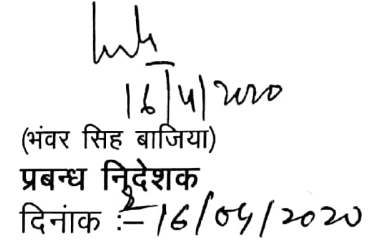 16/4/2020
(भंवर सिंह बाजिया)
प्रबन्ध निदेशक
दिनांक :- 16/04/2020